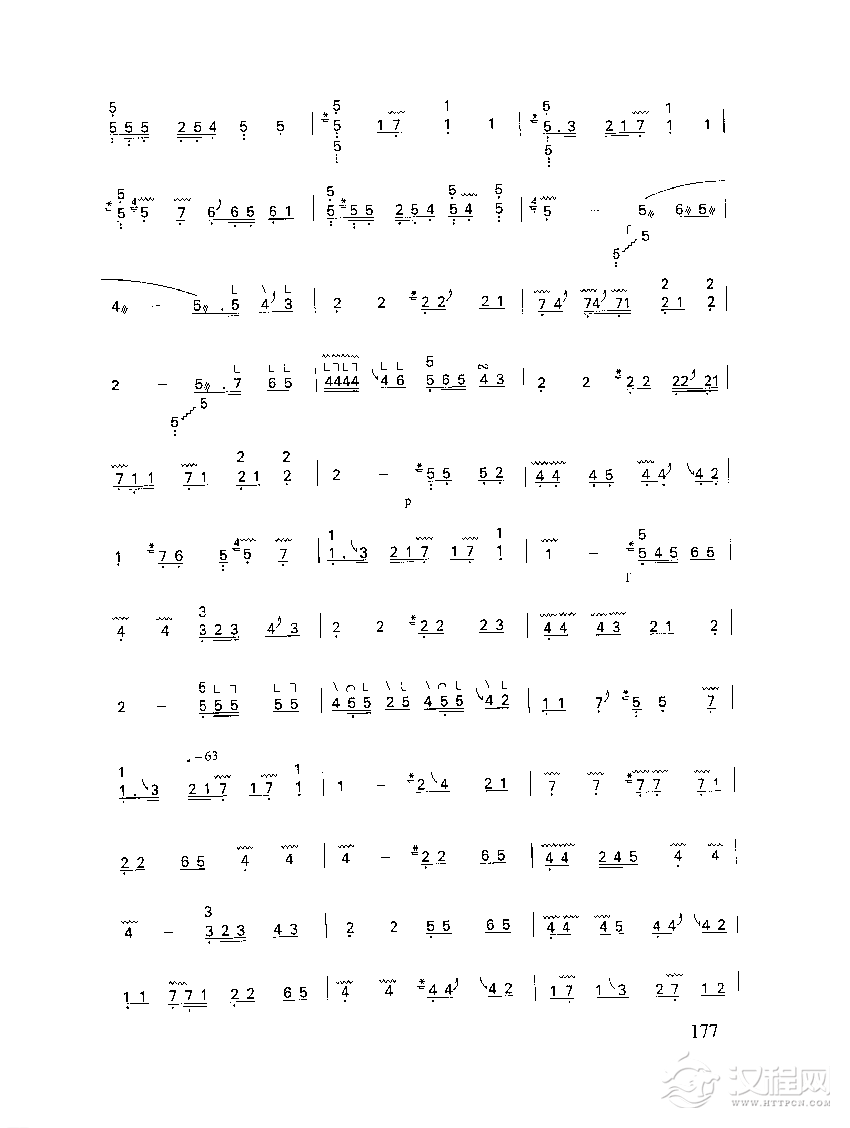 5 5 1 5 1
5 5 5 2 5 4 5 5 | 5 1 7 1 1 | 5 . 3 2 1 7 1 1 |
5 5
5 4 5 5
5 5 7 6 6 5 6 1 | 5 5 5 2 5 4 5 4 5 | 5 – 5 6 5 |
5 5
4 – 5 . 5 4 3 | 2 2 2 2 2 1 | 7 4 7 4 7 1 2 1 2 |
2 2
2 – 5 . 7 6 5 | 4 4 4 4 4 6 5 6 5 4 3 | 2 2 2 2 2 2 2 1 |
5 5
2 2
7 1 1 7 1 2 1 2 | 2 – 5 5 5 2 | 4 4 4 5 4 4 4 2 |
p
1 1 5
1 7 6 5 5 7 | 1 . 3 2 1 7 1 7 1 | 1 – 5 4 5 6 5 |
3
4 4 3 2 3 4 3 | 2 2 2 2 2 3 | 4 4 4 3 2 1 2 |
2 – 5 5 5 5 5 | 4 6 5 2 5 4 5 5 4 2 | 1 1 7 5 5 7 |
–63
1 1
1 . 3 2 1 7 1 7 1 | 1 – 2 4 2 1 | 7 7 7 7 7 1 |
2 2 6 5 4 4 | 4 – 2 2 6 5 | 4 4 2 4 5 4 4 |
3
4 – 3 2 3 4 3 | 2 2 5 5 6 5 | 4 4 4 5 4 4 4 2 |
1 1 7 7 1 2 2 6 5 | 4 4 4 4 4 2 | 1 7 1 3 2 7 1 2 |
177
汉程网
WWW.HTTPCN.COM